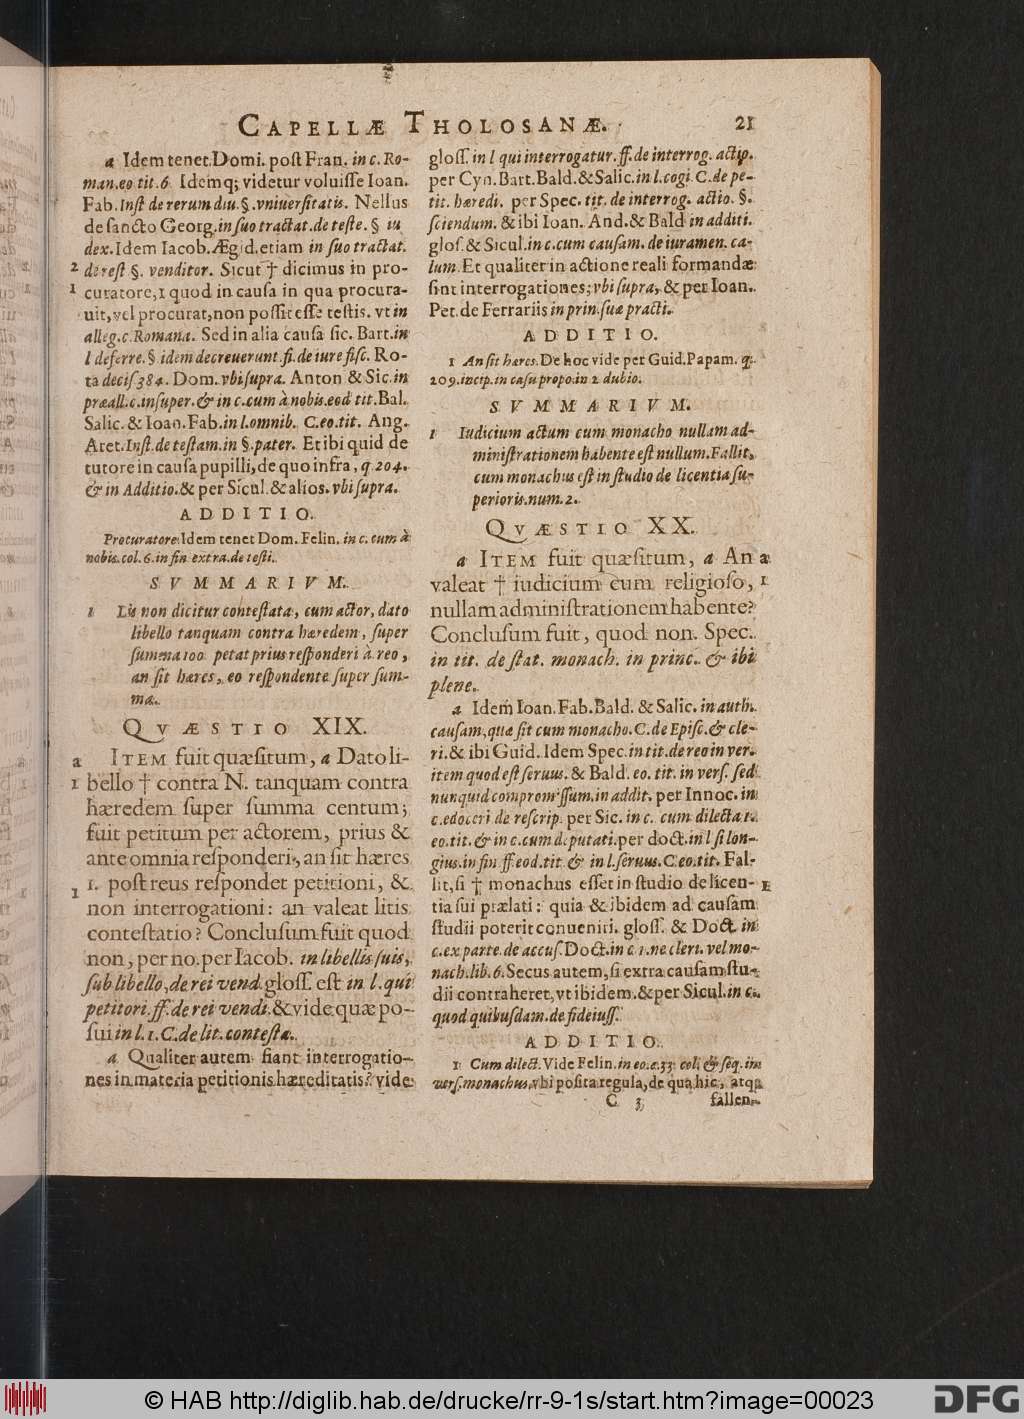 CAPELLÆ THOLOSANÆ. 21
a Idem tenet Domi. post Fran. in c. Ro-
man. eo tit. 6. Idemq; videtur voluisse Ioan.
Fab. Inst de rerum diu. §. vniuersitatis. Nellus
de sancto Georg. in suo tractat. de teste. § iu
dex. Idem Iacob. Ægid. etiam in suo tractat.
2 de rest §. venditor. Sicut † dicimus in pro-
1 curatore, 1 quod in causa in qua procura-
uit, vel procurat, non possit esse testis. vt in
alleg. c. Romana. Sed in alia causa sic. Bart. in
l deferre. § idem decreuerunt. ff. de iure fisc. Ro-
ta decis 384. Dom. vbi supra. Anton & Sic. in
præall. c. insuper. & in c. cum à nobis. eod tit. Bal.
Salic. & Ioan. Fab. in l. omnib. C. eo. tit. Ang.
Aret. Inst. de testam. in §. pater. Et ibi quid de
tutore in causa pupilli, de quo infra, q 204.
& in Additio. & per Sicul. & alios. vbi supra.
ADDITIO.
Procuratore. Idem tenet Dom. Felin. in c. cum à
nobis. col. 6. in fin extra. de testi.
SVMMARIVM.
1 Lis non dicitur contestata, cum actor, dato
libello tanquam contra hæredem, super
summa 100 petat prius responderi à reo,
an sit hæres, eo respondente super sum-
ma.
QVÆSTIO XIX.
a ITEM fuit quæsitum, a Dato li-
1 bello † contra N. tanquam contra
hæredem super summa centum;
fuit petitum per actorem, prius &
ante omnia responderi, an sit hæres
1 1. post reus respondet petitioni, &
non interrogationi: an valeat litis
contestatio? Conclusum fuit quod
non, per no. per Iacob. in libellis suis,
sub libello, de rei vend. gloss. est in l. qui
petitori. ff. de rei vendi. & vide quæ po-
sui in l. 1. C. de lit. contesta.
a Qualiter autem fiant interrogatio-
nes in materia petitionis hæreditatis? vide
gloss. in l qui interrogatur. ff. de interrog. actio.
per Cyn. Bart. Bald. & Salic. in l. cogi. C. de pe-
tit. hæredi. per Spec. tit. de interrog. actio. §.
sciendum. & ibi Ioan. And. & Bald in additi.
glos. & Sicul. in c. cum causam. de iuramen. ca-
lum. Et qualiter in actione reali formandæ
sint interrogationes; vbi supra, & per Ioan.
Pet. de Ferrariis in prin. suæ practi.
ADDITIO.
1 An sit hæres. De hoc vide per Guid. Papam. q.
209. incip. in casu propo. in 2. dubio.
SVMMARIVM.
1 Iudicium actum cum monacho nullam ad-
ministrationem habente est nullum. Fallit,
cum monachus est in studio de licentia su-
perioris. num. 2.
QVÆSTIO XX.
a ITEM fuit quæsitum, a An a
valeat † iudicium cum religioso, 1
nullam administrationem habente?
Conclusum fuit, quod non. Spec.
in tit. de stat. monach. in princ. & ibi
plene.
a Idem Ioan. Fab. Bald. & Salic. in auth.
causam, quæ sit cum monacho. C. de Episc. & cle-
ri. & ibi Guid. Idem Spec. in tit. de reo in ver.
item quod est seruus. & Bald. eo. tit. in vers. sed
nunquid compromissum. in addit. per Innoc. in
c. edoceri de rescrip. per Sic. in c. cum dilecta 1.
eo. tit. & in c. cum deputati. per doct. in l si lon-
gius. in fin ff. eod. tit & in l. seruus. C. eo. tit. Fal-
lit, si † monachus esset in studio de licen-
tia sui prælati: quia & ibidem ad causam
studii poterit conueniri. gloss. & Doct. in
c. ex parte. de accus. Doct. in c. 1. ne cleri. vel mo-
nach. lib. 6. Secus autem, si extra causam stu-
dii contraheret, vt ibidem. & per Sicul. in c.
quod quibusdam. de fideiuss.
ADDITIO.
1 Cum dilect. Vide Felin. in eo. æ. 33. col. & seq. in
vers. monachus, vbi posita regula, de qua hic, atq;
C 3 fallen-
© HAB http://diglib.hab.de/drucke/rr-9-1s/start.htm?image=00023
DFG